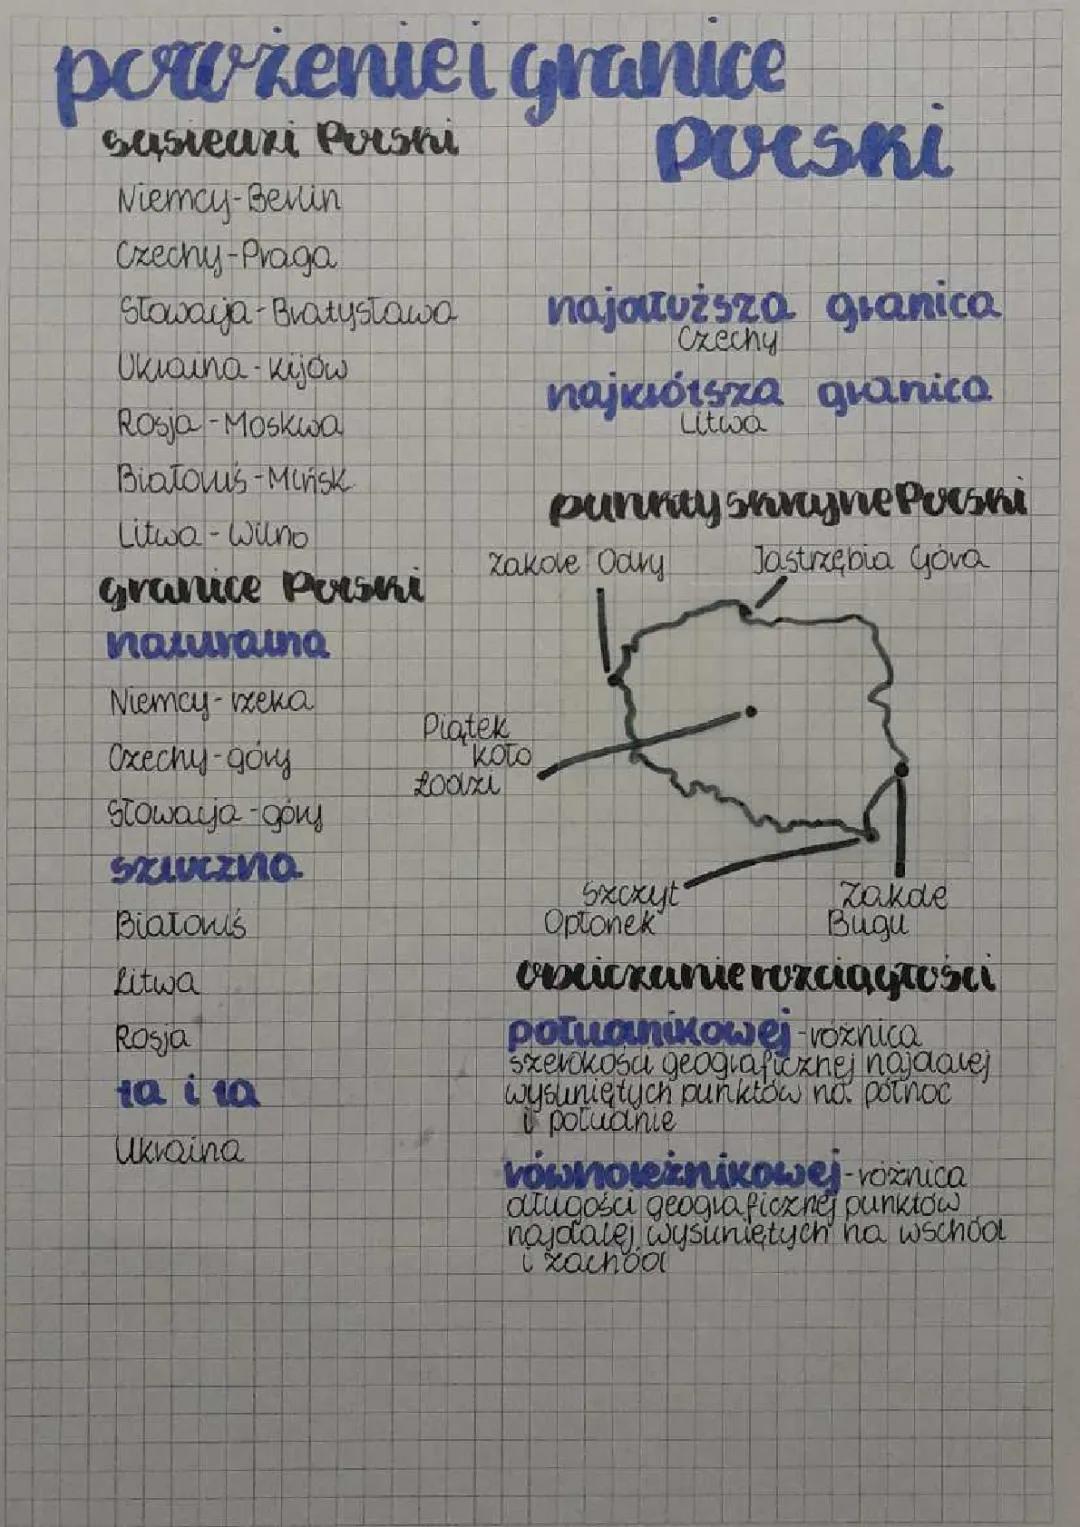 położenie i granice
Polski
sąsiedzi Polski
Niemcy-Berlin
Czechy-Praga
Słowacja-Bratysława
Ukraina-kijów
Rosja-Moskwa
Białoruś-Mińsk
Litwa-Wilno
granice Polski
naturalna
Niemcy-rzeka
Czechy-góry
Słowacja-góry
sztuczna
Białoruś
Litwa
Rosja
ta i ta
Ukraina
najdłuższa granica
Czechy
najkrótsza granica
Litwa
punkty skrajne Polski
Zakole Odry Jastrzębia Góra
Piątek
koło
Łodzi
Szczyt
Opłonek
Zakole
Bugu
obliczanie rozciągłości
południkowej-różnica
szerokości geograficznej najdalej
wysuniętych punktów na północ
i południe
równoleżnikowej-różnica
długości geograficznej punktów
najdalej wysuniętych na wschód
i zachód